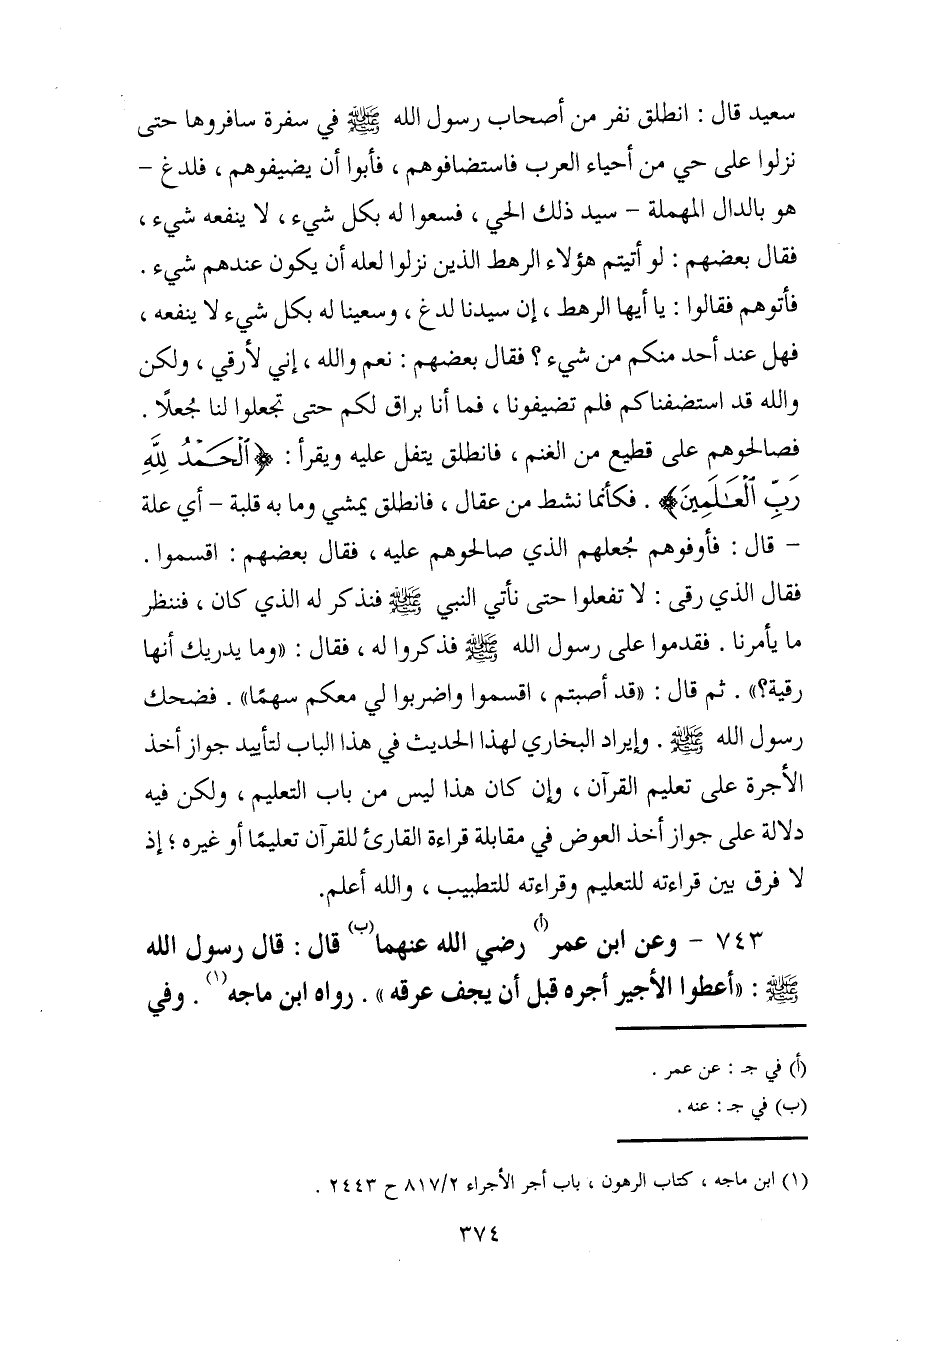 سعيد قال : انطلق نفر من أصحاب رسول الله ﷺ في سفرة سافروها حتى
نزلوا على حي من أحياء العرب فاستضافوهم ، فأبوا أن يضيفوهم ، فلدغ –
هو بالدال المهملة – سيد ذلك الحي ، فسعوا له بكل شيء ، لا ينفعه شيء ،
فقال بعضهم : لو أتيتم هؤلاء الرهط الذين نزلوا لعله أن يكون عندهم شيء .
فأتوهم فقالوا : يا أيها الرهط ، إن سيدنا لدغ ، وسعينا له بكل شيء لا ينفعه ،
فهل عند أحد منكم من شيء ؟ فقال بعضهم : نعم والله ، إني لأرقي ، ولكن
والله قد استضفناكم فلم تضيفونا ، فما أنا براق لكم حتى تجعلوا لنا جُعلًا .
فصالحوهم على قطيع من الغنم ، فانطلق يتفل عليه ويقرأ : ﴿ٱلْحَمْدُ لِلَّهِ
رَبِّ ٱلْعَٰلَمِينَ﴾ . فكأنما نشط من عقال ، فانطلق يمشي وما به قلبة – أي علة
– قال : فأوفوهم جُعلهم الذي صالحوهم عليه ، فقال بعضهم : اقسموا .
فقال الذي رقى : لا تفعلوا حتى نأتي النبي ﷺ فنذكر له الذي كان ، فننظر
ما يأمرنا . فقدموا على رسول الله ﷺ فذكروا له ، فقال : «وما يدريك أنها
رقية؟» . ثم قال : «قد أصبتم ، اقسموا واضربوا لي معكم سهمًا» . فضحك
رسول الله ﷺ . وإيراد البخاري لهذا الحديث في هذا الباب لتأييد جواز أخذ
الأجرة على تعليم القرآن ، وإن كان هذا ليس من باب التعليم ، ولكن فيه
دلالة على جواز أخذ العوض في مقابلة قراءة القارئ للقرآن تعليمًا أو غيره ؛ إذ
لا فرق بين قراءته للتعليم وقراءته للتطبيب ، والله أعلم.
٧٤٣ – وعن ابن عمر(أ) رضي الله عنهما(ب) قال : قال رسول الله
ﷺ : «أعطوا الأجير أجره قبل أن يجف عرقه» . رواه ابن ماجه(١) . وفي
(أ) في جـ : عن عمر .
(ب) في جـ : عنه .
(١) ابن ماجه ، كتاب الرهون ، باب أجر الأجراء ٨١٧/٢ ح ٢٤٤٣ .
٣٧٤